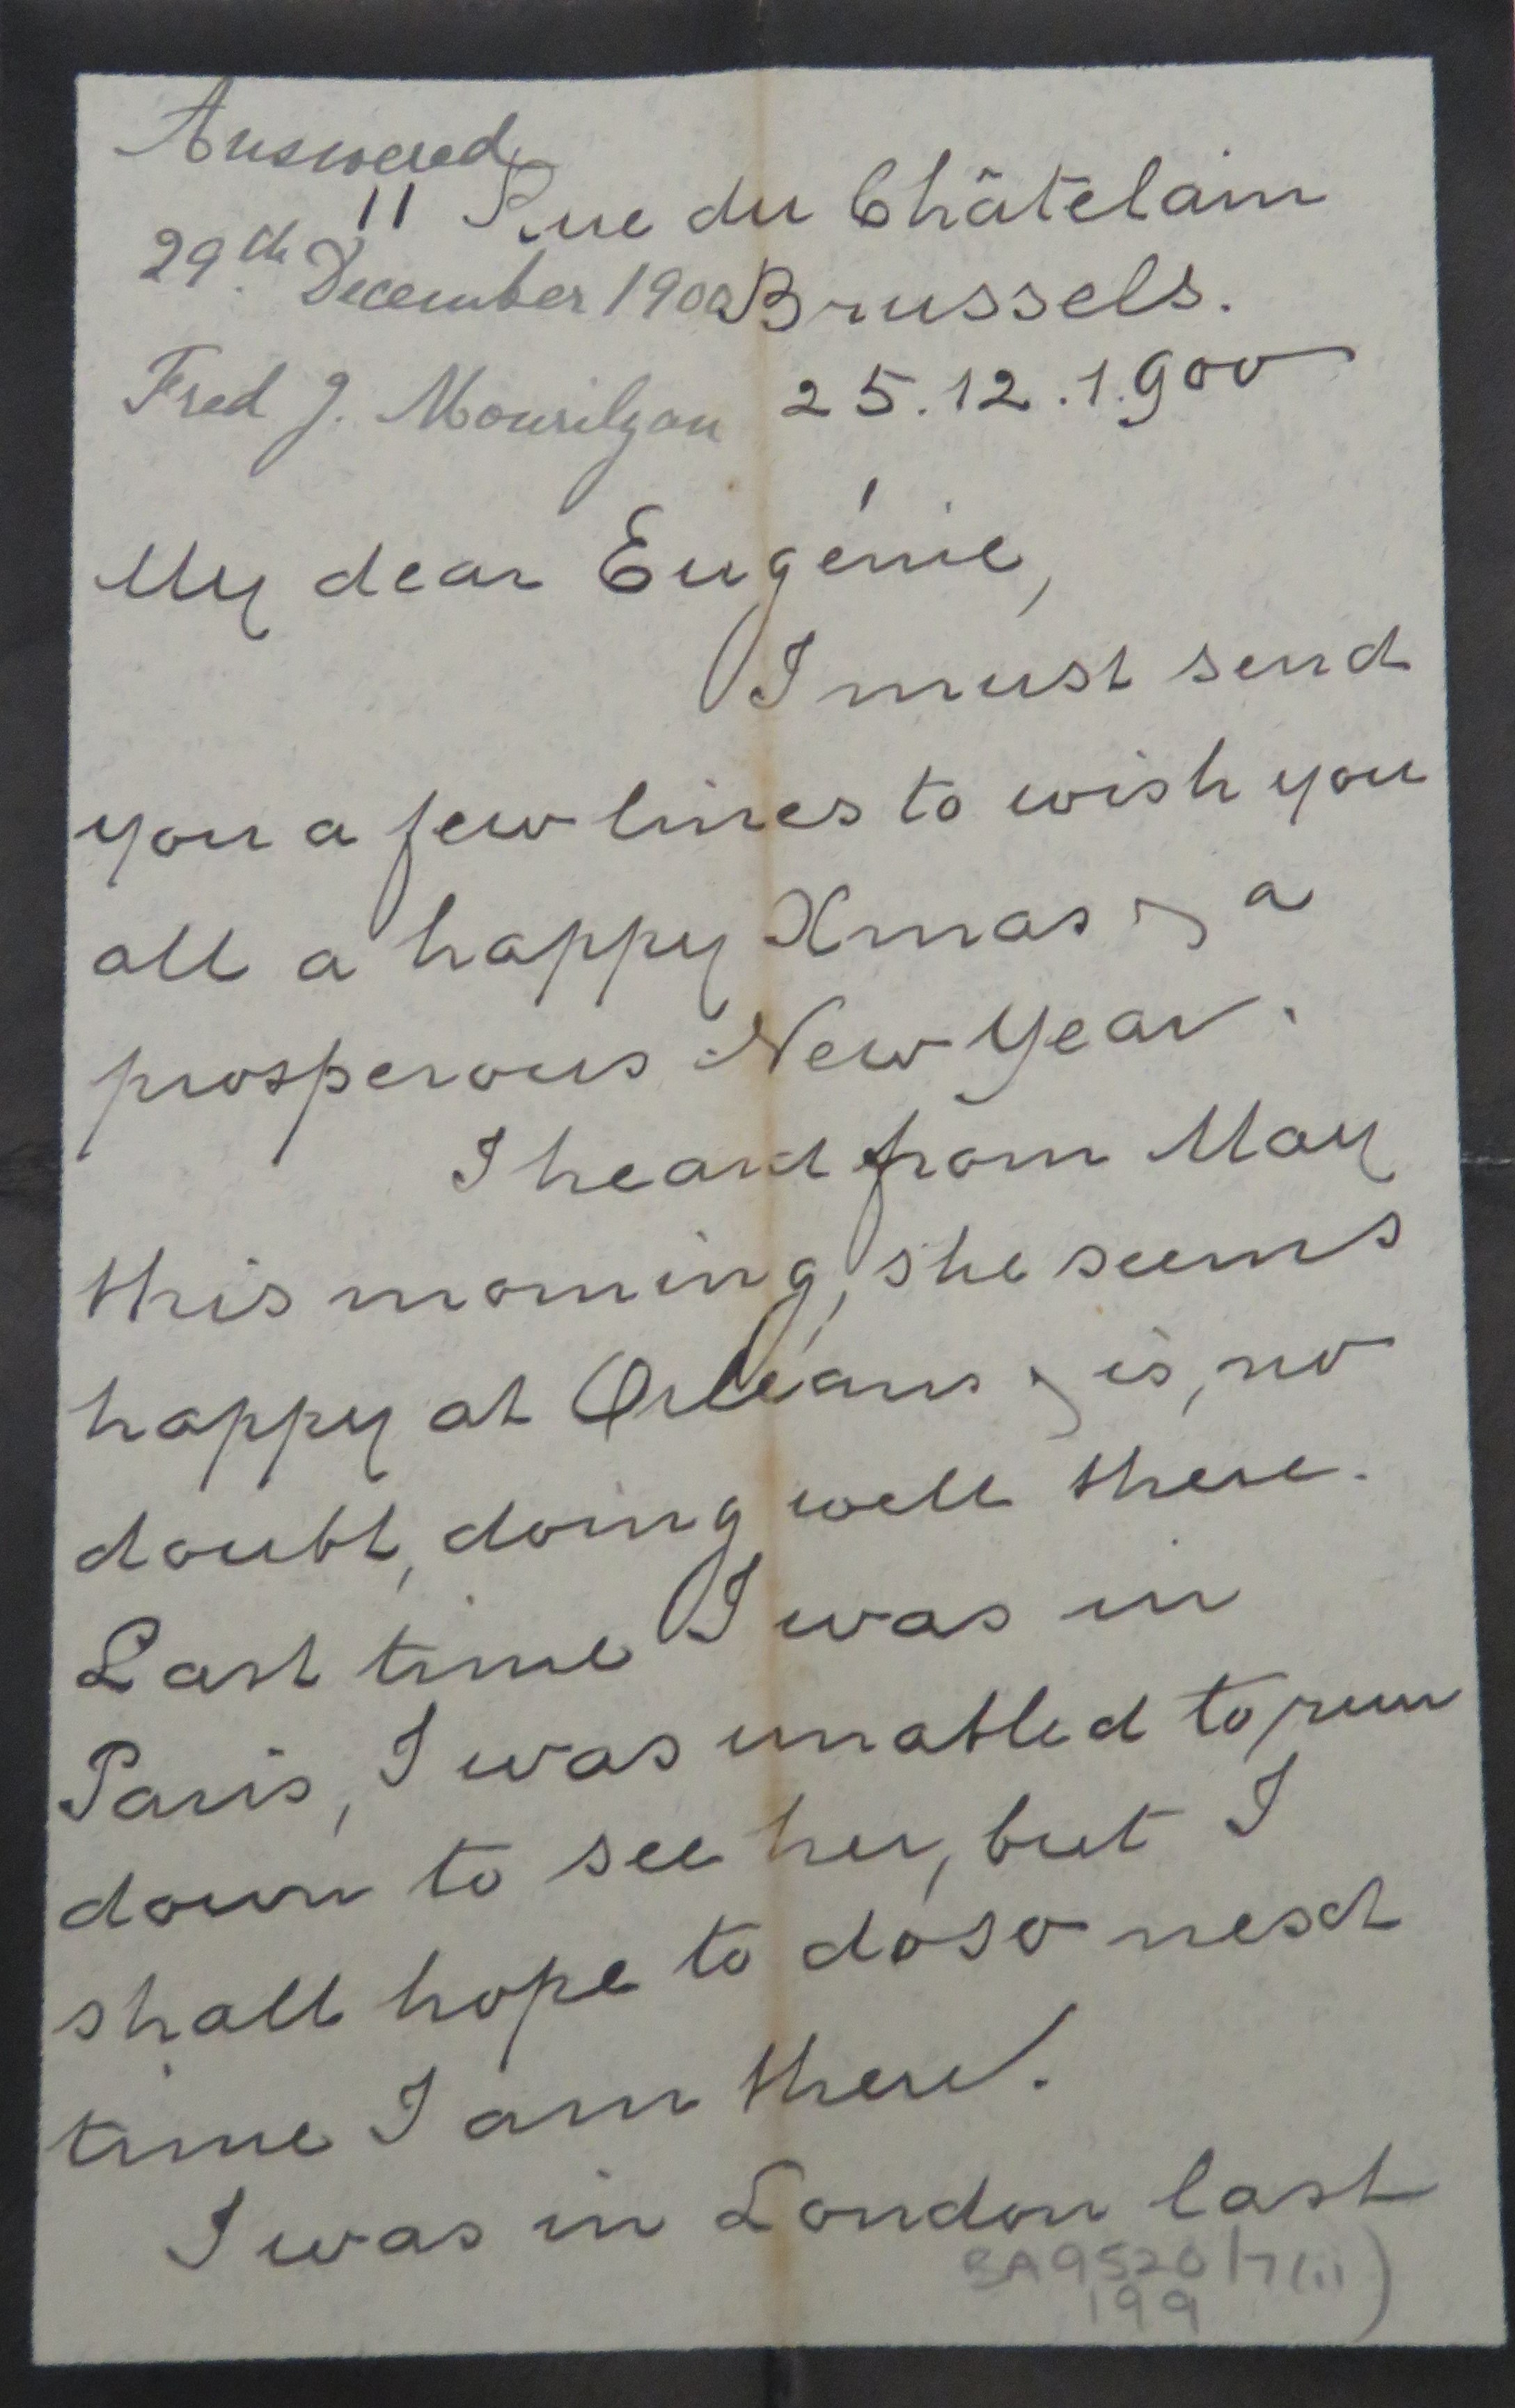 Answered
11 Rue du Châtelain
29th December 1900
Brussels.
Fred J. Mourilyan
25.12.1900
My dear Eugénie,
I must send
you a few lines to wish you
all a happy Xmas & a
prosperous New Year.
I heard from May
this morning, she seems
happy at Orléans & is, no
doubt, doing well there.
Last time I was in
Paris, I was unabled to run
down to see her, but I
shall hope to do so next
time I am there.
I was in London last
BA9520/7(ii)
199